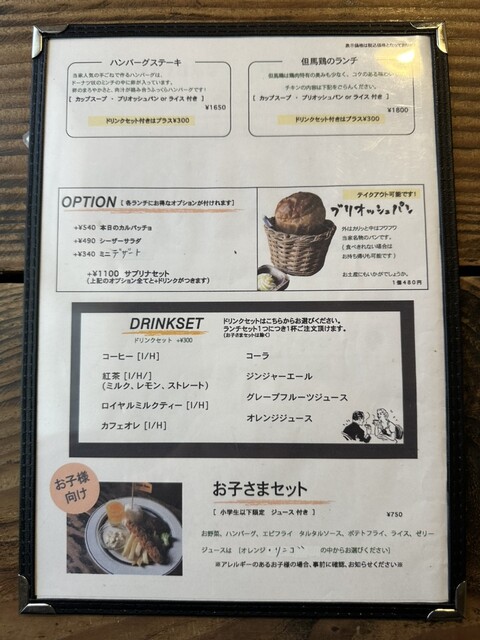 表示価格は税込価格となっております
ハンバーグステーキ
当店人気の手ごねで作るハンバーグは、
ドーナツ状のミンチの中に卵が入っています。
卵のまろやかさと、肉汁が絡み合うふっくらハンバーグです!
[ カップスープ ・ ブリオッシュパン or ライス 付き ]
¥1650
ドリンクセット付きはプラス¥300
但馬鶏のランチ
但馬鶏は鶏肉特有の臭みも少なく、コクのある味わい
チキンの内容は下記をごらんください。
[ カップスープ ・ ブリオッシュパン or ライス 付き ]
¥1800
ドリンクセット付きはプラス¥300
OPTION [ 各ランチにお得なオプションが付けれます]
+¥540 本日のカルパッチョ
+¥490 シーザーサラダ
+¥340 ミニデザート
+¥1100 サブリナセット
(上記のオプション全てと+ドリンクがつきます)
テイクアウト可能です!
ブリオッシュパン
外はカリッと中はフワフワ
当店名物のパンです。
( 食べきれない場合は
お持ち帰りも可能です )
お土産にもいかがでしょうか。
1個480円
DRINKSET
ドリンクセット +¥300
ドリンクセットはこちらからお選びください。
ランチセット1つにつき1杯ご注文頂けます。
(お子さまセットは除く)
コーヒー [I/H]
紅茶 [I/H/]
(ミルク、レモン、ストレート)
ロイヤルミルクティー [I/H]
カフェオレ [I/H]
コーラ
ジンジャーエール
グレープフルーツジュース
オレンジジュース
お子様
向け
お子さまセット
[ 小学生以下限定 ジュース 付き ]
¥750
お野菜、ハンバーグ、エビフライ タルタルソース、ポテトフライ、ライス、ゼリー
ジュースは [オレンジ・リンゴ の中からお選びください]
※アレルギーのあるお子様の場合、事前に確認、お知らせください※